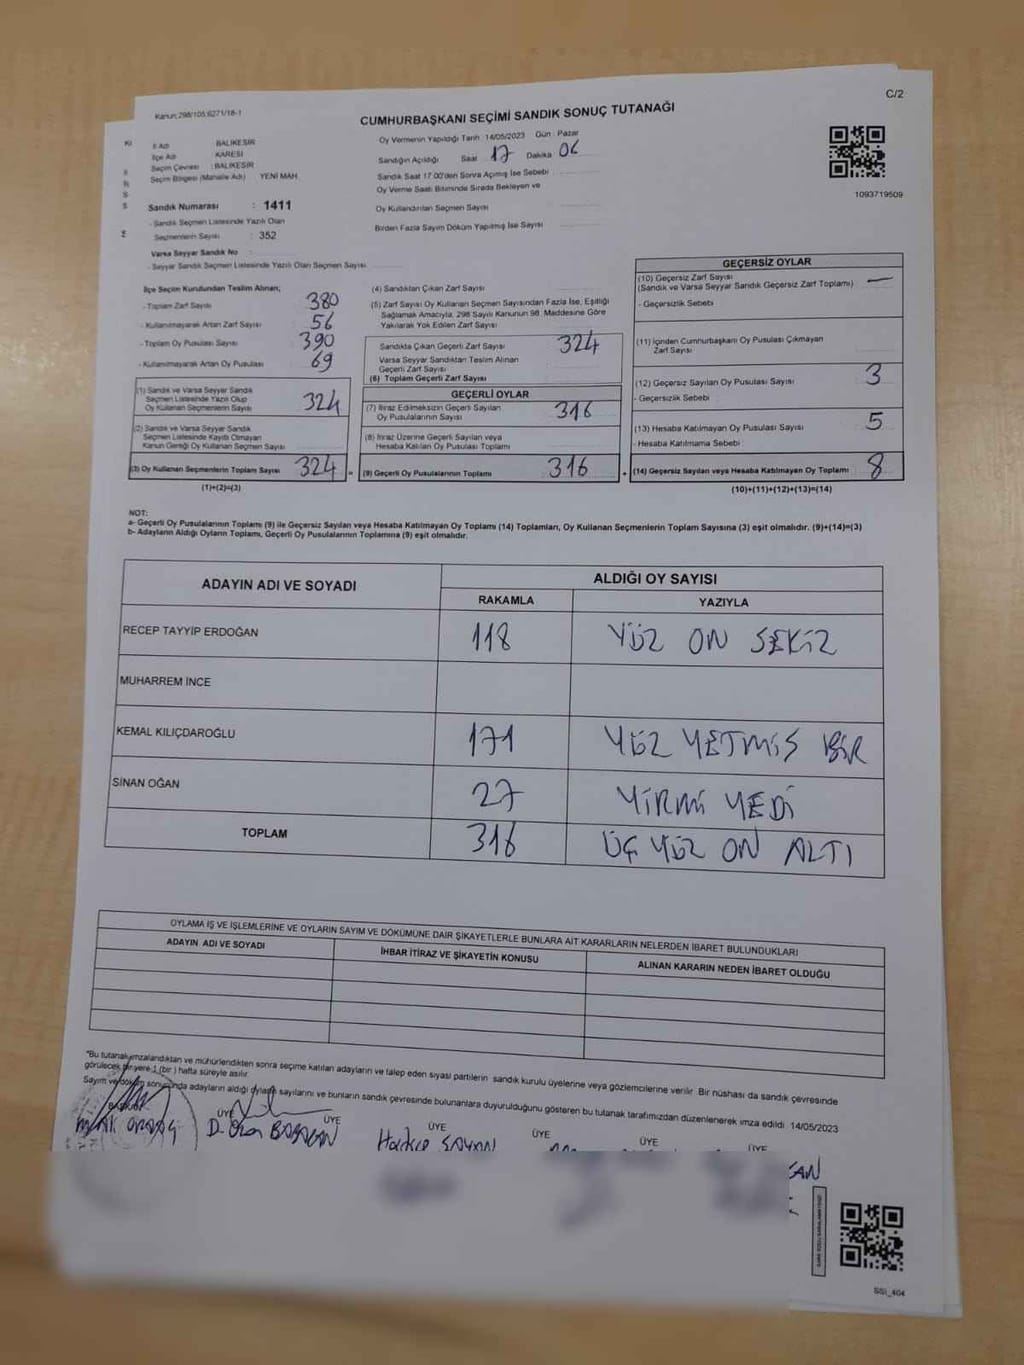 C/2
Kanun:298/105;6271/18-1
CUMHURBAŞKANI SEÇİMİ SANDIK SONUÇ TUTANAĞI
İl Adı : BALIKESİR
İlçe Adı : KARESİ
Seçim Çevresi : BALIKESİR
Seçim Bölgesi (Mahalle Adı) : YENİ MAH.
Sandık Numarası : 1411
- Sandık Seçmen Listesinde Yazılı Olan
Seçmenlerin Sayısı : 352
Varsa Seyyar Sandık No :
- Seyyar Sandık Seçmen Listesinde Yazılı Olan Seçmen Sayısı
Oy Vermenin Yapıldığı Tarih 14/05/2023 Gün : Pazar
Sandığın Açıldığı Saat 17 Dakika 06
Sandık Saat 17.00'den Sonra Açılmış İse Sebebi
Oy Verme Saati Bitiminde Sırada Bekleyen ve
Oy Kullandırılan Seçmen Sayısı
Birden Fazla Sayım Döküm Yapılmış İse Sayısı
1093719509
İlçe Seçim Kurulundan Teslim Alınan;
- Toplam Zarf Sayısı 380
- Kullanılmayarak Artan Zarf Sayısı 56
- Toplam Oy Pusulası Sayısı 390
- Kullanılmayarak Artan Oy Pusulası 69
(1) Sandık ve Varsa Seyyar Sandık
Seçmen Listesinde Yazılı Olup
Oy Kullanan Seçmenlerin Sayısı 324
(2) Sandık ve Varsa Seyyar Sandık
Seçmen Listesinde Kayıtlı Olmayan
Kanun Gereği Oy Kullanan Seçmen Sayısı
(3) Oy Kullanan Seçmenlerin Toplam Sayısı 324 =
(1)+(2)=(3)
(4) Sandıktan Çıkan Zarf Sayısı
(5) Zarf Sayısı Oy Kullanan Seçmen Sayısından Fazla İse, Eşitliği
Sağlamak Amacıyla, 298 Sayılı Kanunun 98. Maddesine Göre
Yakılarak Yok Edilen Zarf Sayısı
Sandıkta Çıkan Geçerli Zarf Sayısı 324
Varsa Seyyar Sandıktan Teslim Alınan
Geçerli Zarf Sayısı
(6) Toplam Geçerli Zarf Sayısı
GEÇERLİ OYLAR
(7) İtiraz Edilmeksizin Geçerli Sayılan
Oy Pusulalarının Sayısı 316
(8) İtiraz Üzerine Geçerli Sayılan veya
Hesaba Katılan Oy Pusulaları Toplamı
(9) Geçerli Oy Pusulalarının Toplamı 316 +
GEÇERSİZ OYLAR
(10) Geçersiz Zarf Sayısı
(Sandık ve Varsa Seyyar Sandık Geçersiz Zarf Toplamı) —
- Geçersizlik Sebebi :
(11) İçinden Cumhurbaşkanı Oy Pusulası Çıkmayan
Zarf Sayısı
(12) Geçersiz Sayılan Oy Pusulası Sayısı 3
- Geçersizlik Sebebi :
(13) Hesaba Katılmayan Oy Pusulası Sayısı 5
- Hesaba Katılmama Sebebi :
(14) Geçersiz Sayılan veya Hesaba Katılmayan Oy Toplamı 8
(10)+(11)+(12)+(13)=(14)
NOT:
a- Geçerli Oy Pusulalarının Toplamı (9) ile Geçersiz Sayılan veya Hesaba Katılmayan Oy Toplamı (14) Toplamları, Oy Kullanan Seçmenlerin Toplam Sayısına (3) eşit olmalıdır. (9)+(14)=(3)
b- Adayların Aldığı Oyların Toplamı, Geçerli Oy Pusulalarının Toplamına (9) eşit olmalıdır.
ADAYIN ADI VE SOYADI ALDIĞI OY SAYISI
RAKAMLA YAZIYLA
RECEP TAYYİP ERDOĞAN 118 YÜZ ON SEKİZ
MUHARREM İNCE
KEMAL KILIÇDAROĞLU 171 YÜZ YETMİŞ BİR
SİNAN OĞAN 27 YİRMİ YEDİ
TOPLAM 316 ÜÇ YÜZ ON ALTI
OYLAMA İŞ VE İŞLEMLERİNE VE OYLARIN SAYIM VE DÖKÜMÜNE DAİR ŞİKAYETLERLE BUNLARA AİT KARARLARIN NELERDEN İBARET BULUNDUKLARI
ADAYIN ADI VE SOYADI İHBAR İTİRAZ VE ŞİKAYETİN KONUSU ALINAN KARARIN NEDEN İBARET OLDUĞU
*Bu tutanak imzalandıktan ve mühürlendikten sonra seçime katılan adayların ve talep eden siyasi partilerin sandık kurulu üyelerine veya gözlemcilerine verilir. Bir nüshası da sandık çevresinde
görülecek bir yere 1 (bir ) hafta süreyle asılır.
Sayım ve döküm sonucunda adayların aldığı oyların sayılarını ve bunların sandık çevresinde bulunanlara duyurulduğunu gösteren bu tutanak tarafımızdan düzenlenerek imza edildi 14/05/2023
ÜYE ÜYE ÜYE ÜYE ÜYE ÜYE
SSİ_404